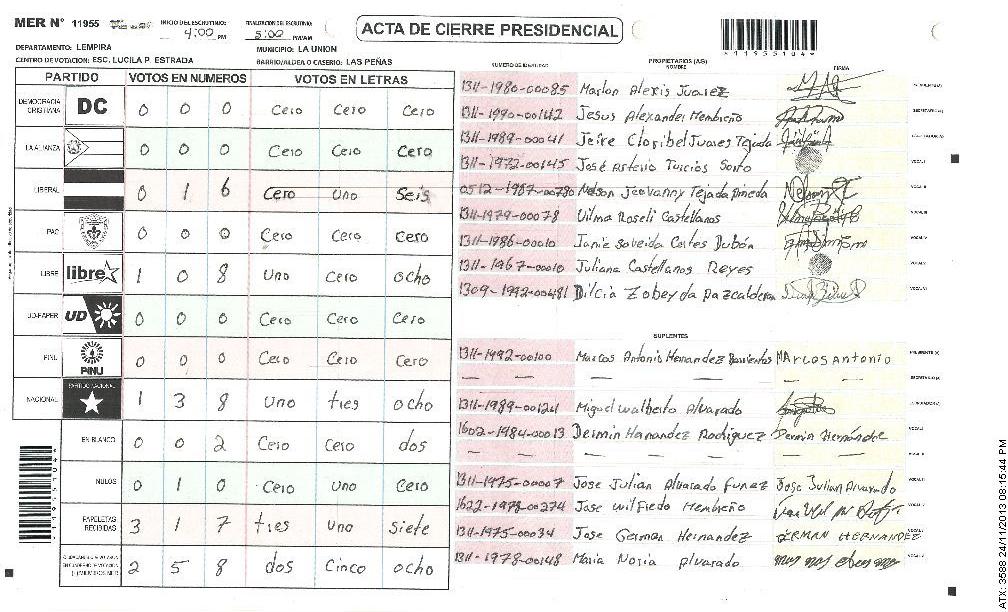 MER N° 11955
INICIO DEL ESCRUTINIO: 4:00 PM
FINALIZACION DEL ESCRUTINIO: 5:00 PM/AM
ACTA DE CIERRE PRESIDENCIAL
*1195504*
DEPARTAMENTO: LEMPIRA
MUNICIPIO: LA UNION
CENTRO DE VOTACION: ESC. LUCILA P. ESTRADA
BARRIO/ALDEA O CASERIO: LAS PEÑAS
PARTIDO VOTOS EN NUMEROS VOTOS EN LETRAS
DEMOCRACIA CRISTIANA DC 0 0 0 Cero Cero Cero
LA ALIANZA 0 0 0 Cero Cero Cero
LIBERAL 0 1 6 Cero Uno Seis
PAC 0 0 0 Cero Cero Cero
LIBRE libre 1 0 8 Uno Cero ocho
UD-FAPER UD 0 0 0 Cero Cero Cero
PINU PINU 0 0 0 Cero Cero Cero
NACIONAL PARTIDO NACIONAL 1 3 8 uno tres ocho
EN BLANCO 0 0 2 Cero Cero dos
NULOS 0 1 0 Cero uno Cero
PAPELETAS RECIBIDAS 3 1 7 tres uno siete
2 5 8 dos Cinco ocho
*1195504*
NUMERO DE IDENTIDAD PROPIETARIOS (AS) NOMBRE FIRMA
1311-1980-00085 Marlon Alexis Juarez
1311-1990-00142 Jesus Alexander Membreño
1311-1989-00041 Jeire Claribel Juares Tejada
1311-1972-00145 José Arterio Turcios Sorto
0512-1987-00780 Nelson Jeovanny Tejada Pineda
1311-1979-00078 Vilma Roseli Castellanos
1311-1986-00010 Janie Cortes Dubón
1311-1967-00010 Juliana Castellanos Reyes
1309-1992-00481 Dilcia Zobeyda Pazcalderon
SUPLENTES
1311-1992-00100 Marcos Antonio Hernandez Barrientos MArcos Antonio
— — — — — —
1311-1989-00121 Miguel Walberto Alvarado
1602-1984-00013 Dermin Hernandez Rodriguez Dermin Hernández
— — — — — —
1311-1975-00007 Jose Julian Alvarado Funez Jose Julian Alvarado
1622-1978-00274 Jose Wilfredo Membreño
1311-1975-00034 Jose German Hernandez GERMAN HERNANDEZ
1311-1978-00148 Maria Noria Alvarado
ATX: 3588 24/11/2013 08:15:44 PM